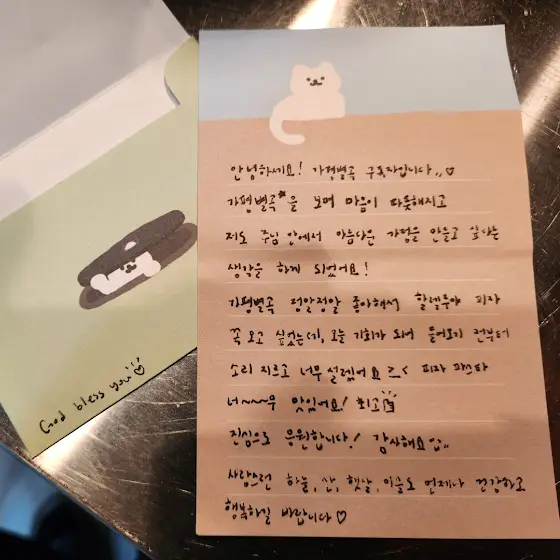 안녕하세요! 가평별곡 구독자입니다,, ♡
가평별곡*을 보며 마음이 따뜻해지고
저도 주님 안에서 아름다운 가정을 만들고 싶다는
생각을 하게 되었어요!
가평별곡 정말정말 좋아해서 할렐루야 피자
꼭 오고 싶었는데, 오늘 기회가 되어 들어오기 전부터
소리 지르고 너무 설렜어요 >_< 피자 파스타
너~~~무 맛있어요! 최고
진심으로 응원합니다! 감사해요
사랑스런 하늘, 산, 햇날, 이슬도 언제나 건강하고
행복하길 바랍니다 ♡
God bless you!!! ♡